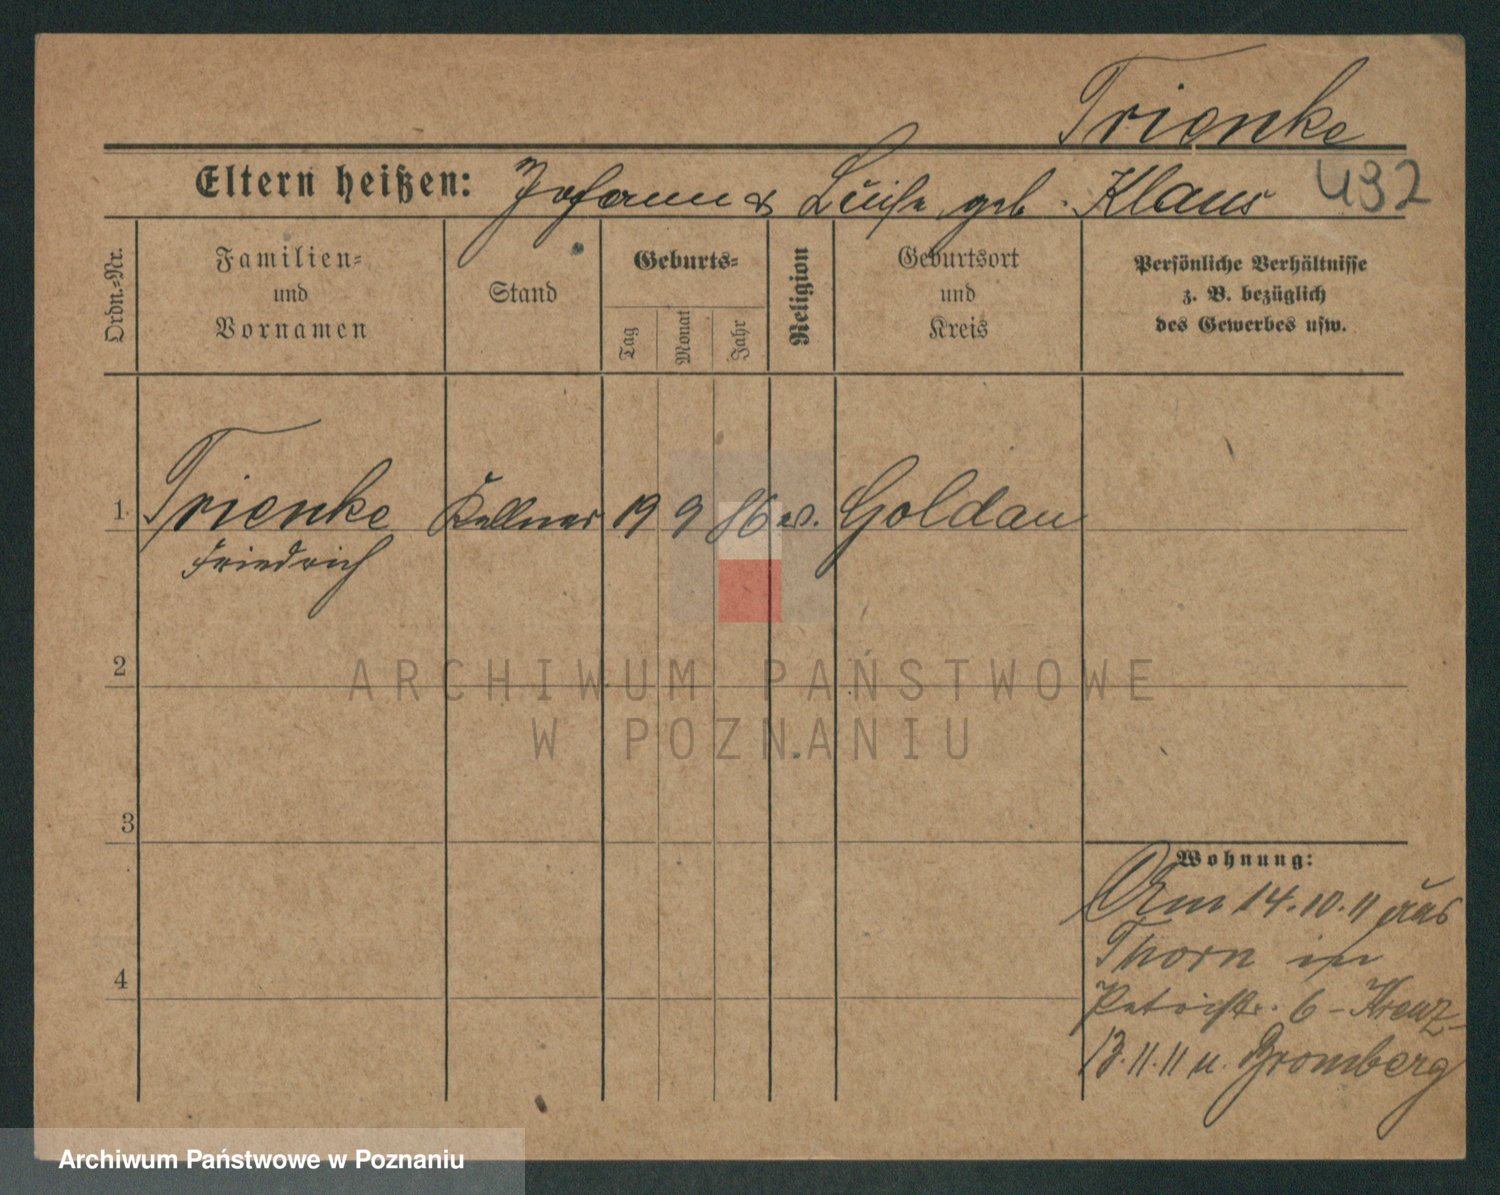 Trienke
Eltern heißen: Johann & Luise geb. Klaus 432
Ordn.-Nr.
Familien-
und
Vornamen
Stand
Geburts-
Tag
Monat
Jahr
Religion
Geburtsort
und
Kreis
Persönliche Verhältnisse
z. B. bezüglich
des Gewerbes usw.
1 Trienke Kellner 19 9 86 ev. Goldau
Friedrich
2
ARCHIWUM PAŃSTWOWE
W POZNANIU
3
4
Wohnung:
Am 14.10.11 aus
Thorn in
Petristr. 6 - Kreuz-
13.11.11 n. Bromberg
Archiwum Państwowe w Poznaniu